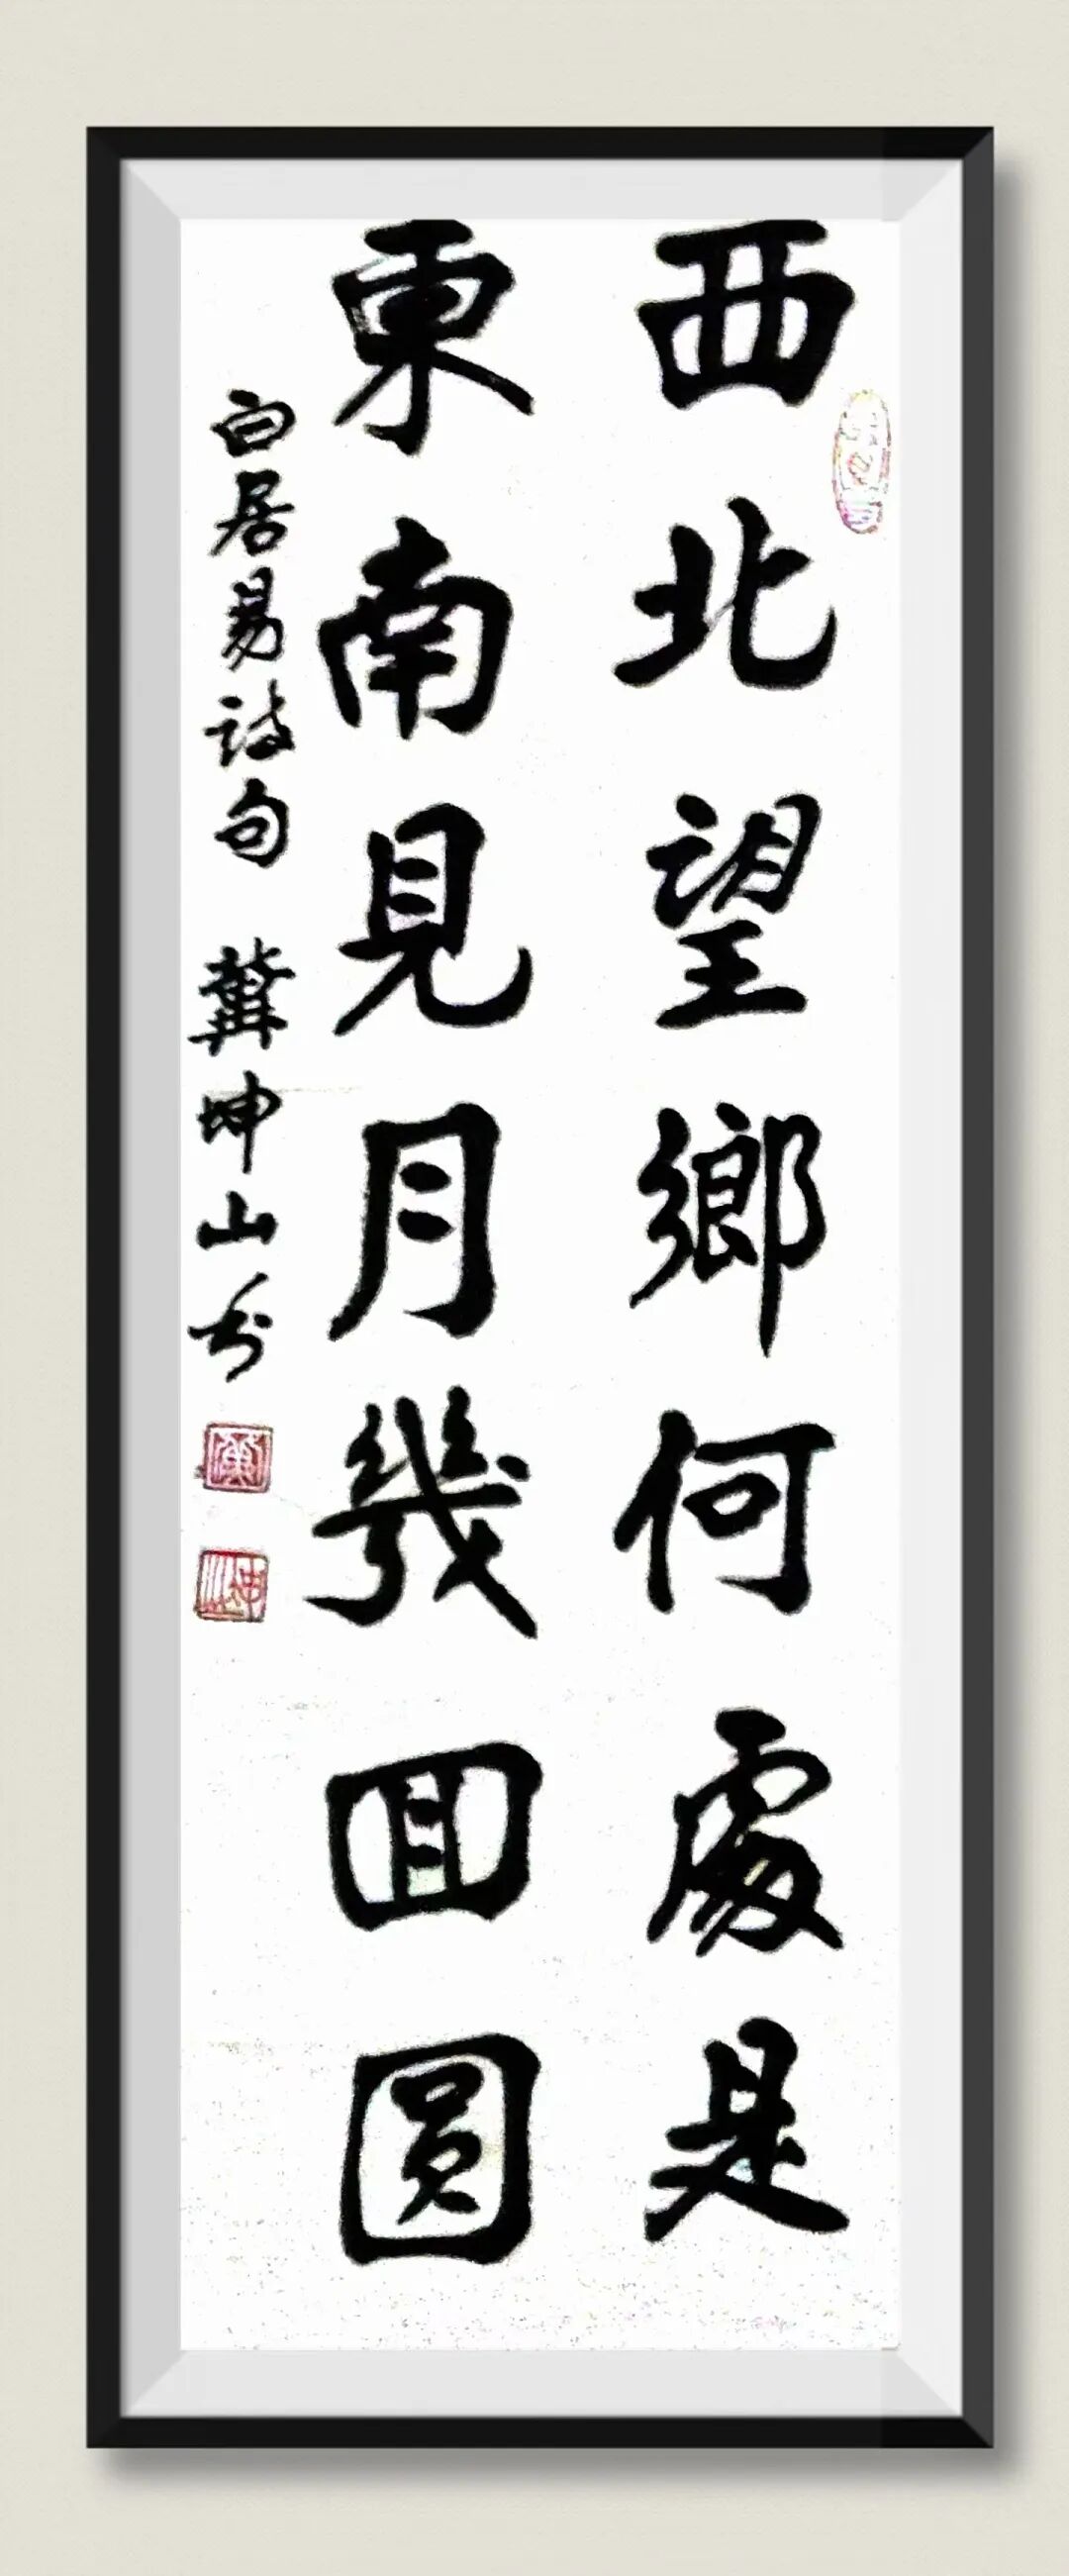 西北望鄉何處是
東南見月幾囬圓
白居易詩句 坤山书